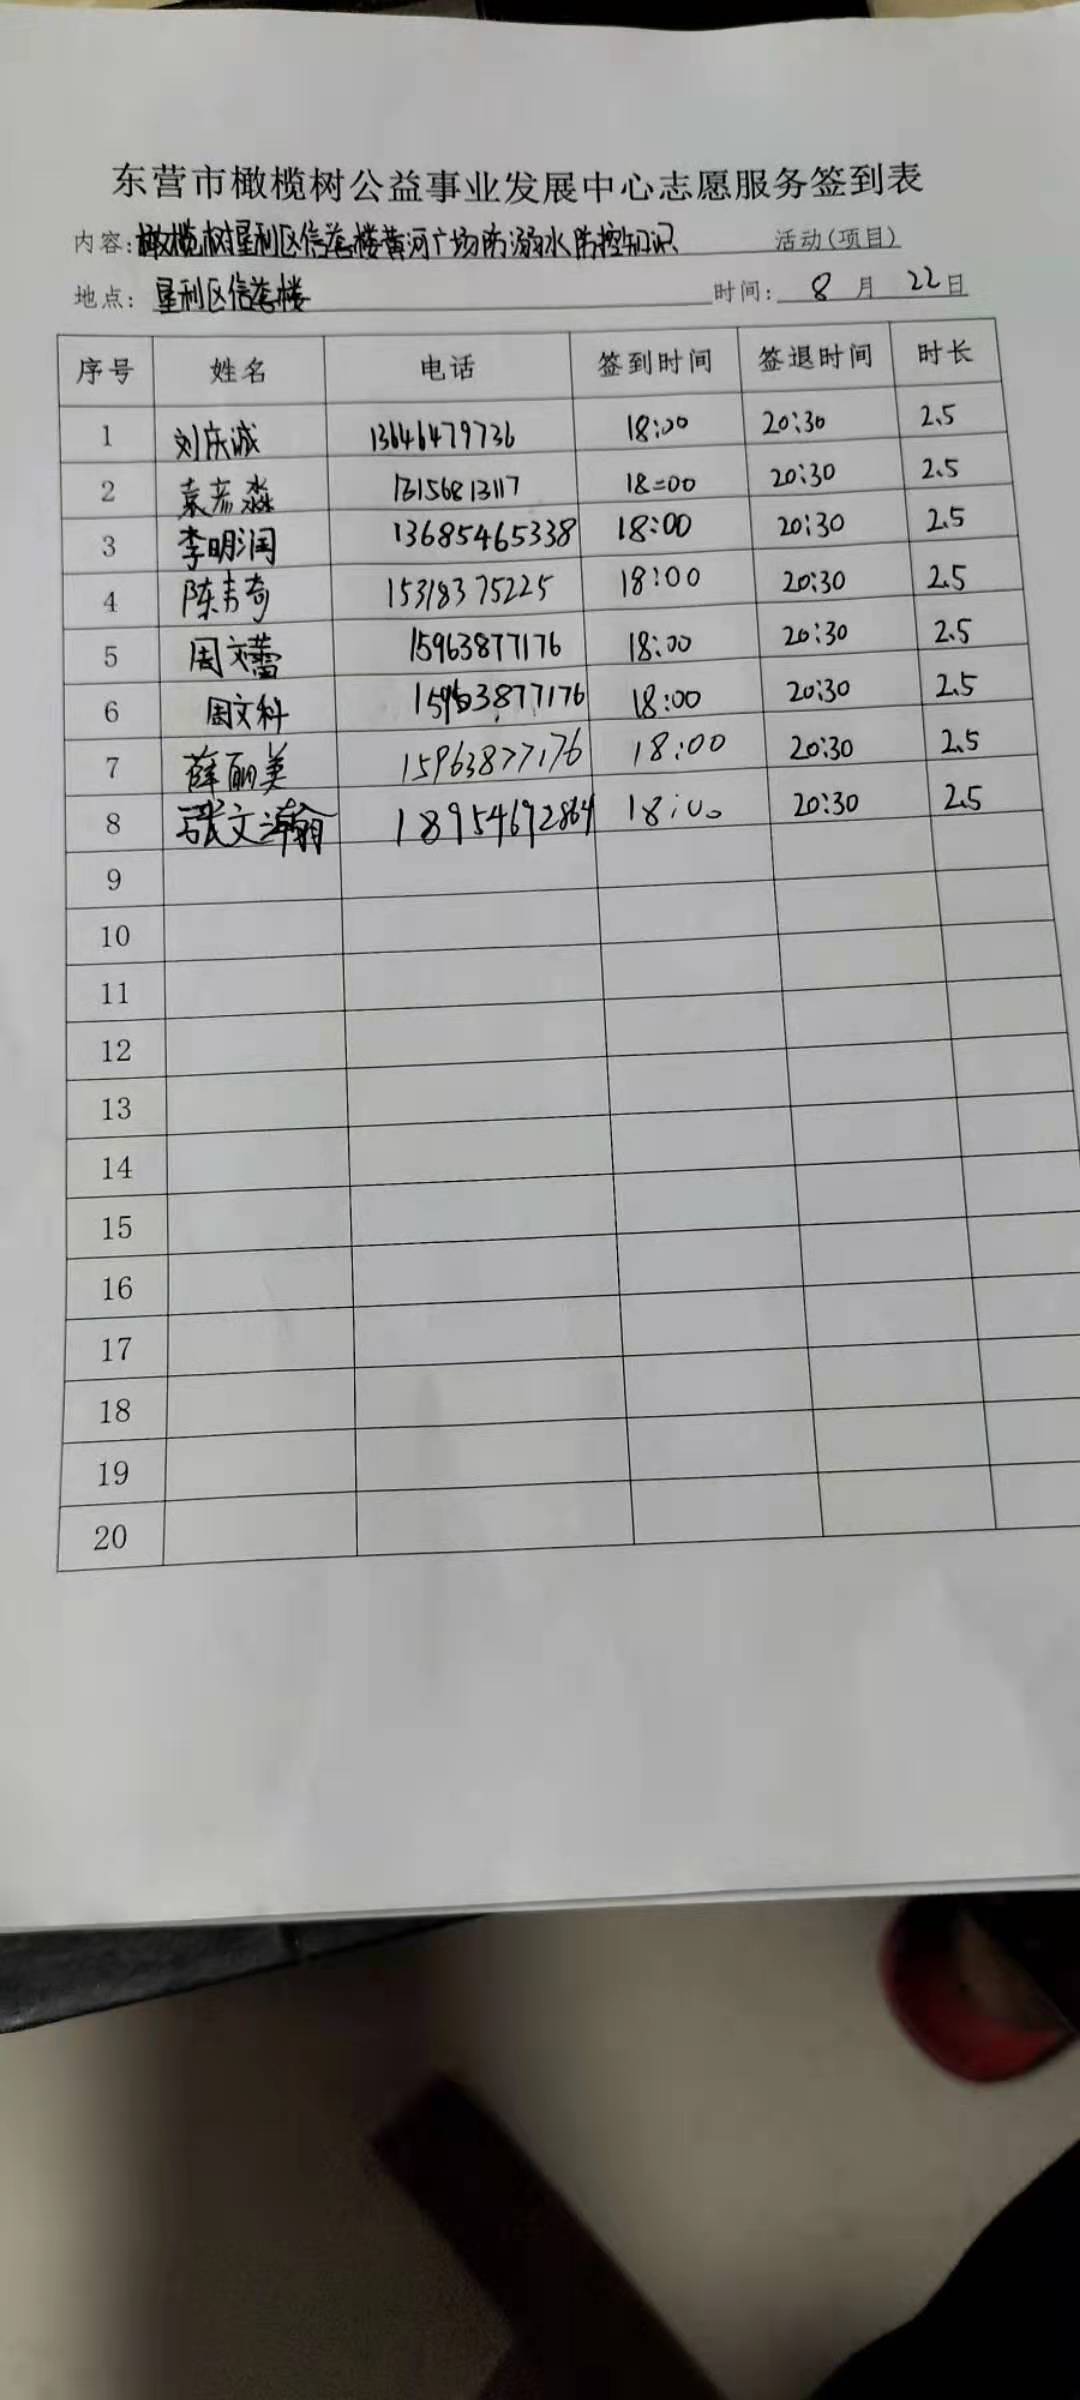 东营市橄榄树公益事业发展中心志愿服务签到表
内容:橄榄树垦利区信誉楼黄河广场防溺水防控知识 活动(项目)
地点: 垦利区信誉楼 时间: 8 月 22 日
序号 姓名 电话 签到时间 签退时间 时长
1 刘庆诚 13646479736 18:00 20:30 2.5
2 袁彦淼 13156813117 18:00 20:30 2.5
3 李明润 13685465338 18:00 20:30 2.5
4 陈奇 15318375225 18:00 20:30 2.5
5 周文蕾 15963877176 18:00 20:30 2.5
6 周文科 15963877176 18:00 20:30 2.5
7 薛丽美 15963877176 18:00 20:30 2.5
8 张文瀚 18954692864 18:00 20:30 2.5
9
10
11
12
13
14
15
16
17
18
19
20